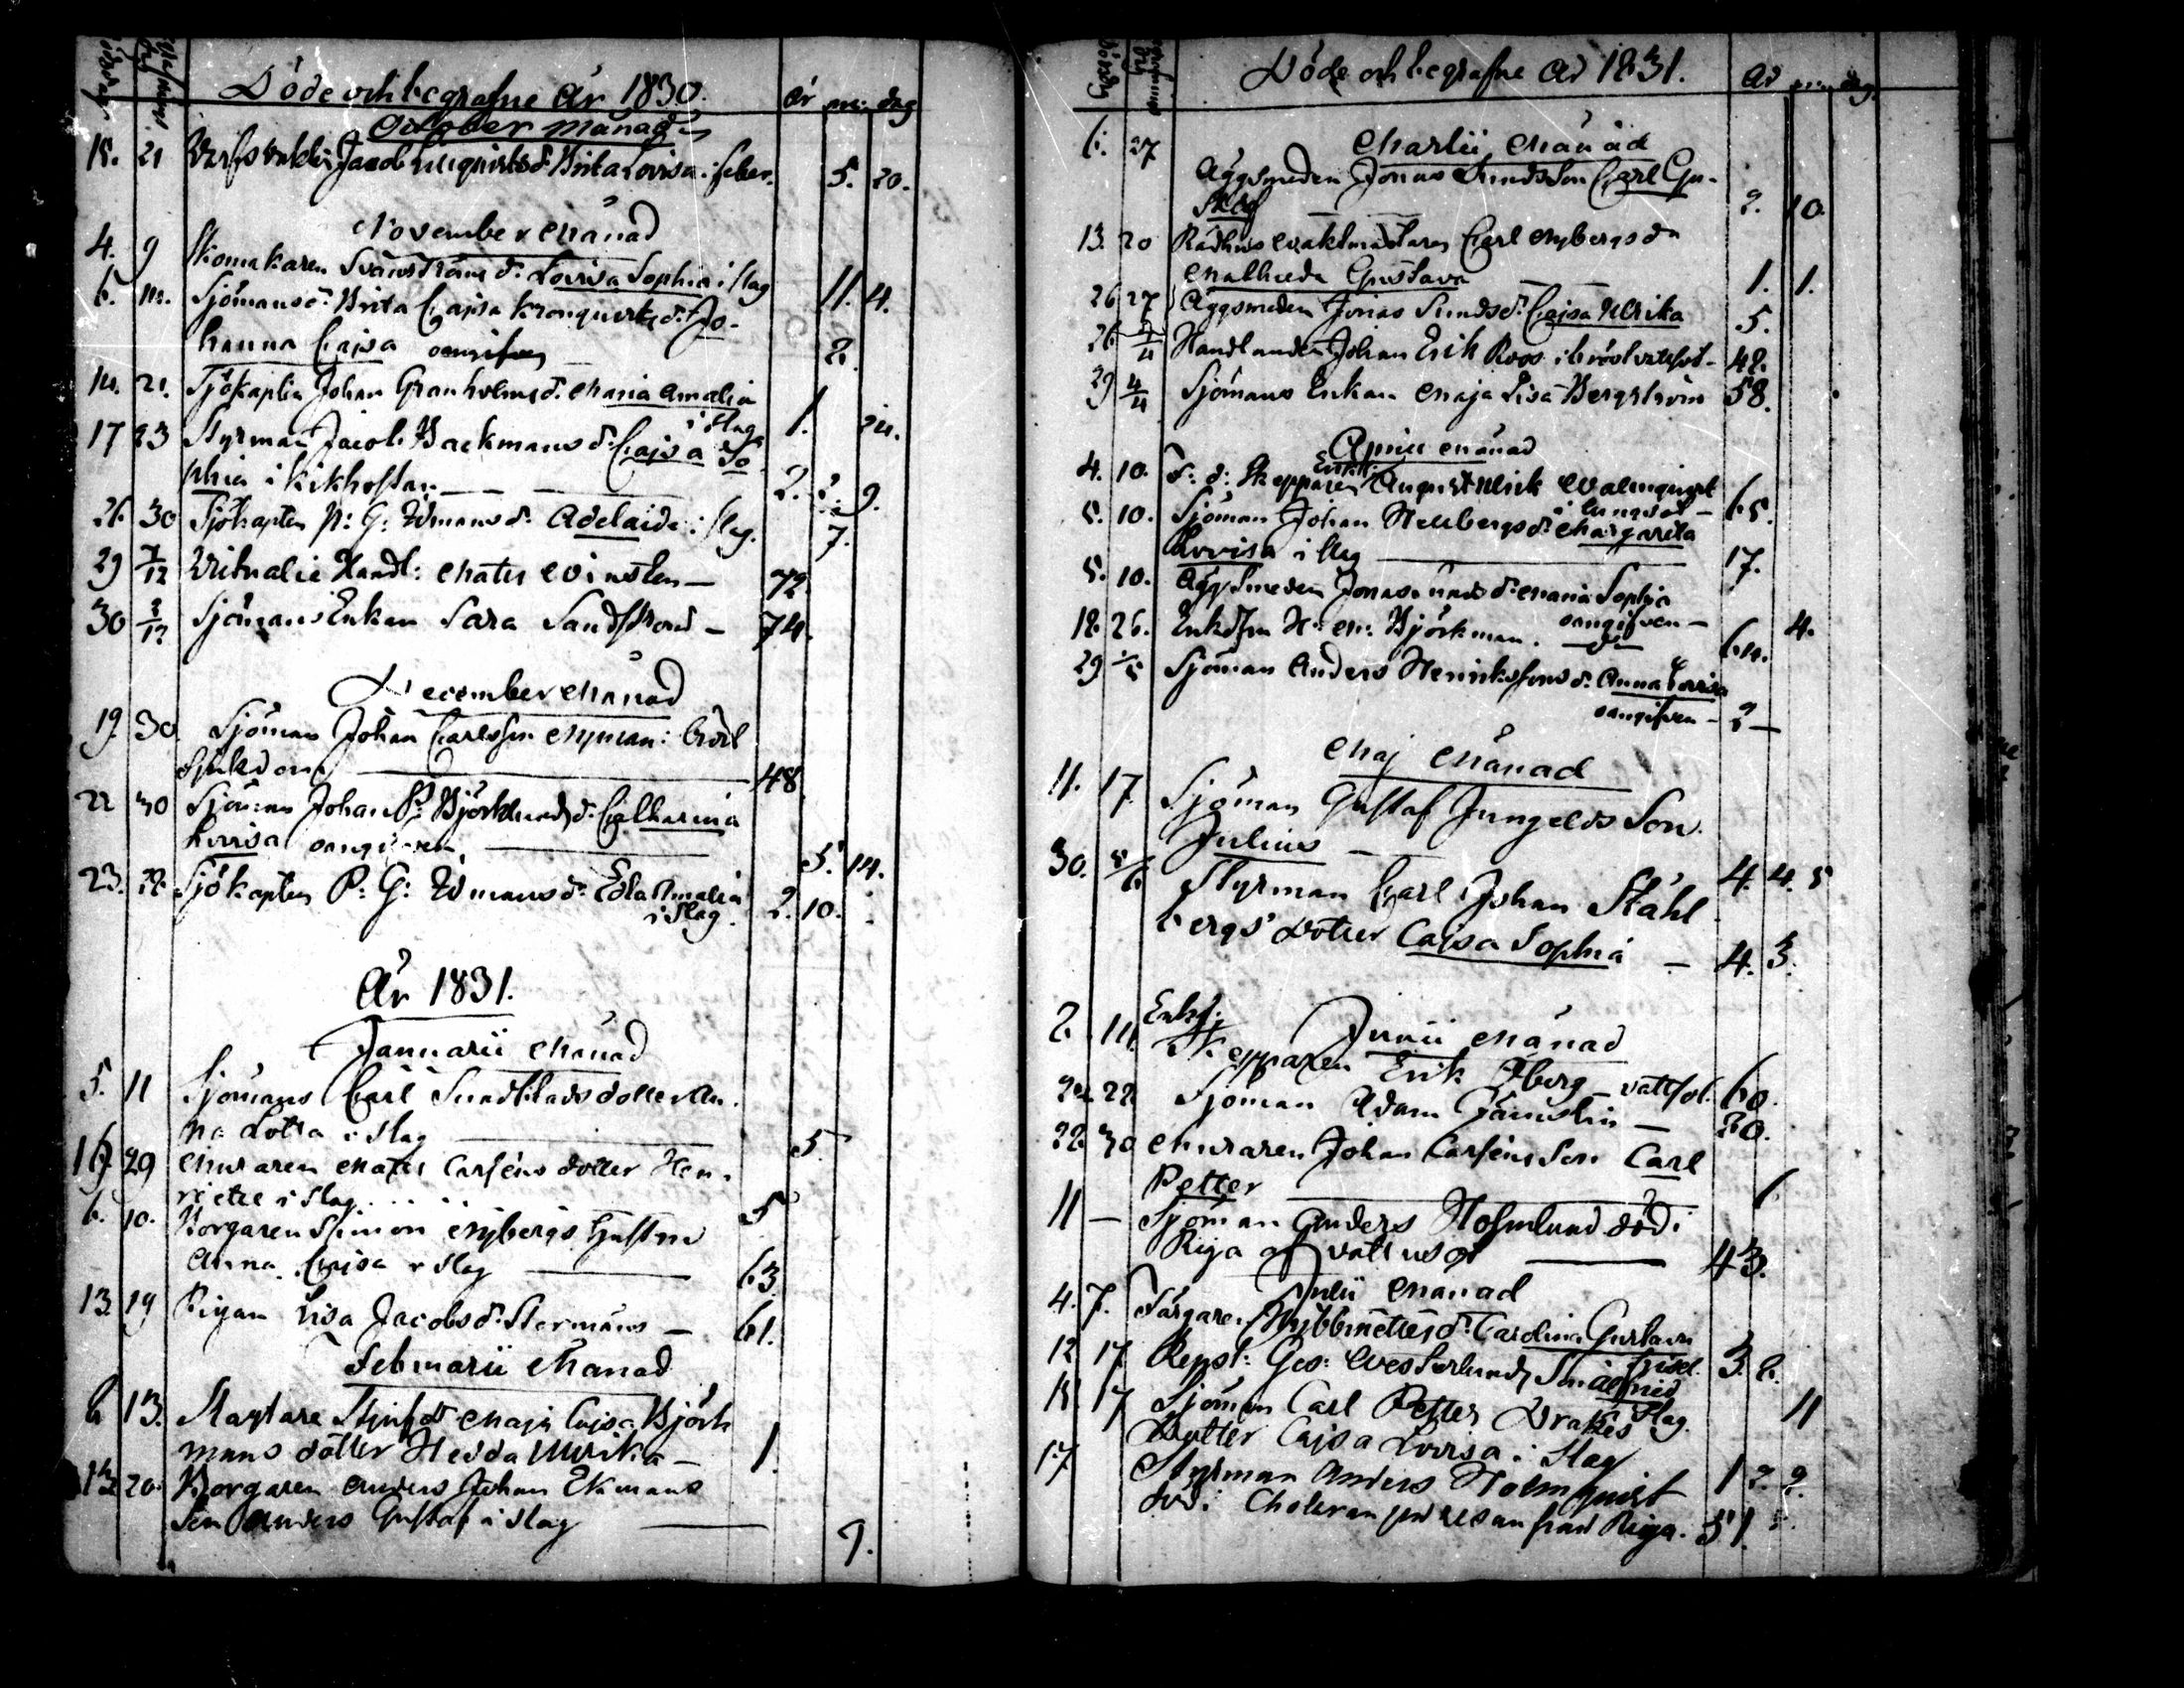 Döde och begrafne År 1830.
år m: dag
October månad
18. 21 Jacob d: Brita Lovisa i feber. 5. 20.
November Månad
4. 9 Skomakaren Svanströms d: Lovisa Sophia i slag 11. 4.
6. 14. Sjömansd: Brita Cajsa Kronquists d: Jo-
hanna Cajsa oangifven 2.
14. 21. Sjökapten Johan Granholms d. Maria Amalia
i slag 1. 24.
17 23 Styrman Jacob Backmans d: Cajsa So
phia i kikhostan 2. 2. 9.
26. 30 Sjökapten P: G: d: Adelaide i slag. 7.
29 7/12 Victualie Handl: Mats Winsten — 72.
30 8/12 Sjömans Enkan Sara Sandstrom — 74.
December Månad
19. 30. Sjöman Johan Carlsson Nyman i bröst
sjukdom 48
22 30 Sjöman Johan P: Björklunds d: Catharina
Lovisa oangifven 5. 14.
23. 28 Sjökapten P: G: d: Eda Amalia
i slag. 2. 10.
År 1831.
Januarii Månad
5. 11 Sjömans Carl Sundblads dotter An-
na Lotta i slag 5
16. 29 Muraren Mats Carséns dotter Hen-
riette i slag 5
6. 10. Borgaren Simon Nybergs hustru
Anna Cajsa i slag 63
13. 19 Pigan Lisa Jacobs d: Stormans — 61.
Februarii Månad
6 13. Maja Cajsa Björk
mans dotter Hedda Ulrika — 1.
13 20. Borgaren Anders Johan Ekmans
Son Anders Gustaf i slag 9.
Döde och begrafne År 1831.
År m: dag.
Martii Månad
6. 27 Äggsmeden Jonas Sunds Son Carl Gu-
staf 2. 10.
13. 20 Rådhus Waktmästaren Carl Nybergs d:
Mathilda Gustava 1. 1.
26 27 Äggsmeden Jonas Sunds d: Cajsa Ulrika 5.
26 Handlanden Johan Erik Roos i bröstvattsot- 42.
29 4/4 Sjömans Enkan Maja Lisa Bergström 58.
April Månad
4. 10. Skepparen August Ulrik Walmquist
i lungsot — 65.
5. 10. Sjöman Johan Hellbergs d: Margareta
Lovisa i slag 17.
5. 10. Äggsmeden Jonas Sunds d: Maria Sophia
oangifven — 4.
18. 26. H: M: Björkman. 64.
29 1/5 Sjöman Anders Henrikssons d: Anna Lovisa
oangifven — 2 —
Maj Månad
11. 17. Sjöman Gustaf Jungelds Son
Julius — 4. 4. 5
30. 5/6 Styrman Carl Johan Ståhl
bergs dotter Cajsa Sophia — 4. 3.
Junii Månad
2. 11. Enkf: Skepparen Erik Öberg — vattsot. 60.
22 Sjöman Adam — 20.
22. 30 Muraren Johan Carséns Son Carl
Petter
11 — Sjöman Anders Holmlund död i
Riga af vattusot 43.
Julii Månad
4. 7. Färgaren d: Carolina Gustava
3. 2.
12 17 Ges: Westerlunds Son
slag. 11
15 17 Sjöman Carl Petter Drakes
Dotter Cajsa Lovisa i slag 1 2. 2.
17 Styrman Anders Holmquist
död i Choleran på resan från Riga. 51.